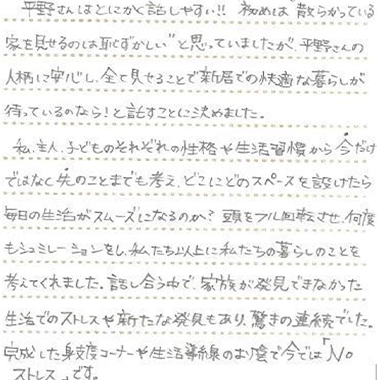 平野さんはとにかく話しやすい!! 初めは"散らかっている
家を見せるのは恥ずかしい"と思っていましたが、平野さんの
人柄に安心し、全て見せることで新居での快適な暮らしが
待っているのなら!と託すことに決めました。
私、主人、子どものそれぞれの性格や生活習慣から今だけ
ではなく先のことまでも考え、どこにどのスペースを設けたら
毎日の生活がスムーズになるのか?頭をフル回転させ、何度
もシュミレーションをし、私たち以上に私たちの暮らしのことを
考えてくれました。話し合う中で、家族が発見できなかった
生活でのストレスや新たな発見もあり、驚きの連続でした。
完成した身支度コーナーや生活導線のお陰で今では「No
ストレス」です。